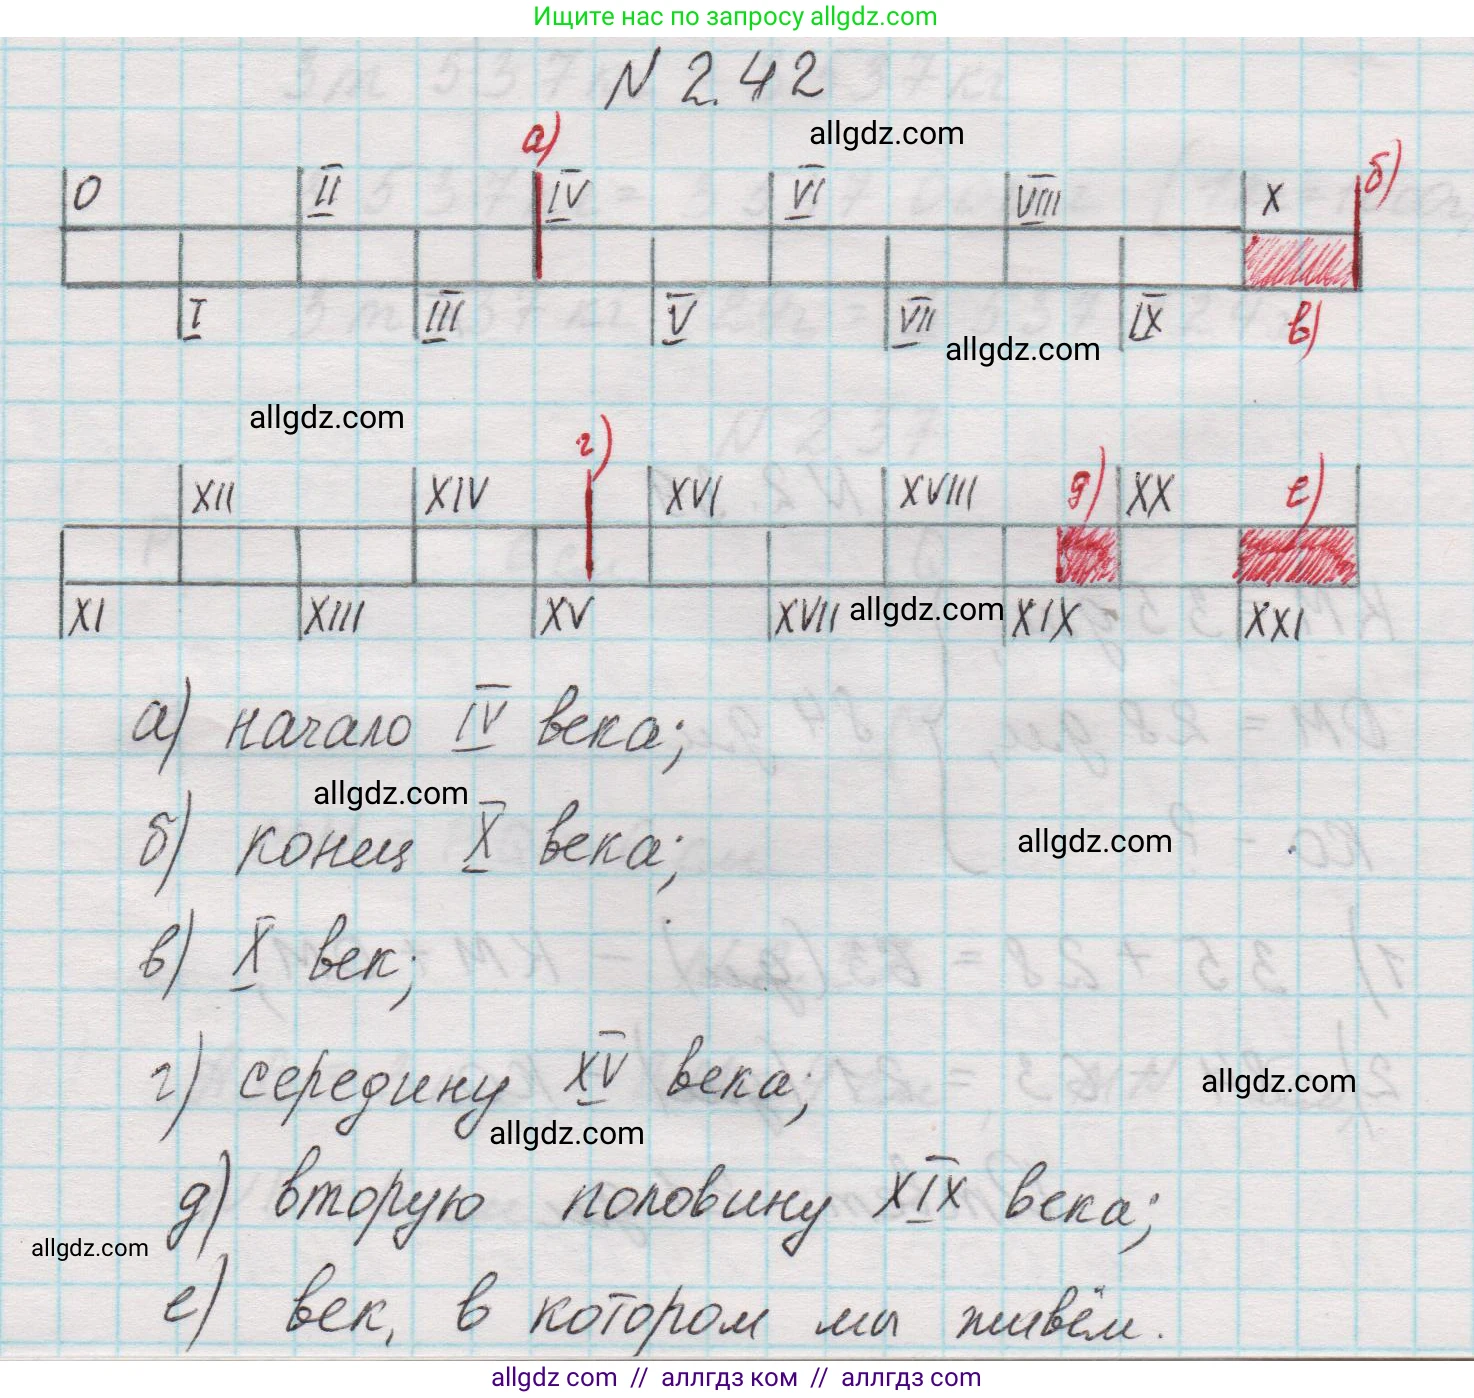 Ищите нас по запросу allgdz.com
N 2.42
allgdz.com
а) б)
0 II IV VI VIII X
I III V VII IX в)
allgdz.com
allgdz.com
г) д) е)
XII XIV XVI XVIII XX
XI XIII XV XVII XIX XXI
allgdz.com
а) начало IV века;
allgdz.com
б) конец X века;
allgdz.com
в) X век;
г) середину XV века;
allgdz.com
allgdz.com
д) вторую половину XIX века;
allgdz.com
е) век, в котором мы живём.
allgdz.com // аллгдз ком // аллгдз com